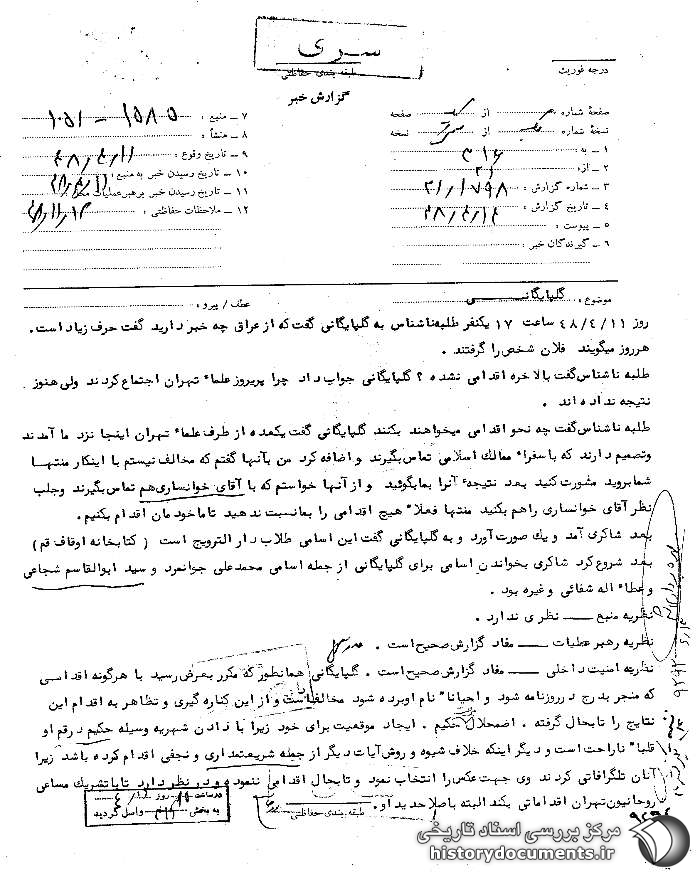 سری
طبقه بندی حفاظتی
درجه فوریت
گزارش خبر
صفحه شماره از صفحه
نسخه شماره از نسخه
۱ ـ به: ۳۱۶
۲ ـ از: ۲۱
۳ ـ شماره گزارش: ۲۱/۱۷۹۸
۴ ـ تاریخ گزارش: ۴۸/۴/۱۴
۵ ـ پیوست:
۶ ـ گیرندگان خبر:
۷ ـ منبع: ۱۵۸۵
۸ ـ منشأ:
۹ ـ تاریخ وقوع: ۴۸/۴/۱۱
۱۰ ـ تاریخ رسیدن خبر به منبع: ۴۸/۴/۱۱
۱۱ ـ تاریخ رسیدن خبر برهبر عملیات
۱۲ ـ ملاحظات حفاظتی:
موضوع: گلپایگانی
عطف / پیرو:
روز ۴۸/۴/۱۱ ساعت ۱۷ یکنفر طلبه ناشناس به گلپایگانی گفت که از عراق چه خبر دارید گفت حرف زیاد است.
هرروز میگویند فلان شخص را گرفتند .
طلبه ناشناس گفت بالاخره اقدامی نشده ؟ گلپایگانی جواب داد چرا پریروز علماء تهران اجتماع کردند ولی هنوز
نتیجه نداده اند .
طلبه ناشناس گفت چه نحو اقدامی میخواهند بکنند گلپایگانی گفت یکعده از طرف علماء تهران اینجا نزد ما آمدند
وتصمیم دارند که با سفراء ممالک اسلامی تماس بگیرند و اضافه کرد من بآنها گفتم که مخالف نیستم با اینکار منتها
شما بروید مشورت کنید بعد نتیجهٔ آنرا بما بگوئید و از آنها خواستم که با آقای خوانساری هم تماس بگیرند وجلب
نظر آقای خوانساری را هم بکنید منتها فعلاً هیچ اقدامی را بما نسبت ندهید تا ما خودمان اقدام بکنیم.
بعد شاکری آمد و یک صورت آورد و به گلپایگانی گفت این اسامی طلاب دار الترویج است ( کتابخانه اوقاف قم )
بعد شروع کرد شاکری بخواندن اسامی برای گلپایگانی از جمله اسامی محمدعلی جوانمرد و سید ابوالقاسم شجاعی
وعطاء اله شفائی وغیره بود .
نظریه منبع ـــ نظری ندارد .
نظریه رهبر عملیات ـــ مفاد گزارش صحیح است .
نظریه امنیت داخلی ـــ مفاد گزارش صحیح است . گلپایگانی همانطور که مکرر بعرض رسید با هرگونه اقدامی
که منجر بدرج در روزنامه شود و احیاناً نام او برده شود مخالف است و از این کناره گیری و تظاهر به اقدام این
نتایج را تابحال گرفته . اضمحلال حکیم . ایجاد موقعیت برای خود زیرا با دادن شهریه وسیله حکیم در قم او
قلباً ناراحت است و دیگر اینکه خلاف شیوه و روش آیات دیگر از جمله شریعتمداری و نجفی اقدام کرده باشد زیرا
آنان تلگرافاتی کردند وی جهت عکس را انتخاب نمود و تابحال اقدامی ننموده و در نظر دارد تا با تشریک مساعی
روحانیون تهران اقداماتی بکند البته با صلاحدید او .
طبقه بندی حفاظتی
به بخش ۳۱۶ واصل گردید
۹۲۹۴
مرکز بررسی اسناد تاریخی
historydocuments.ir